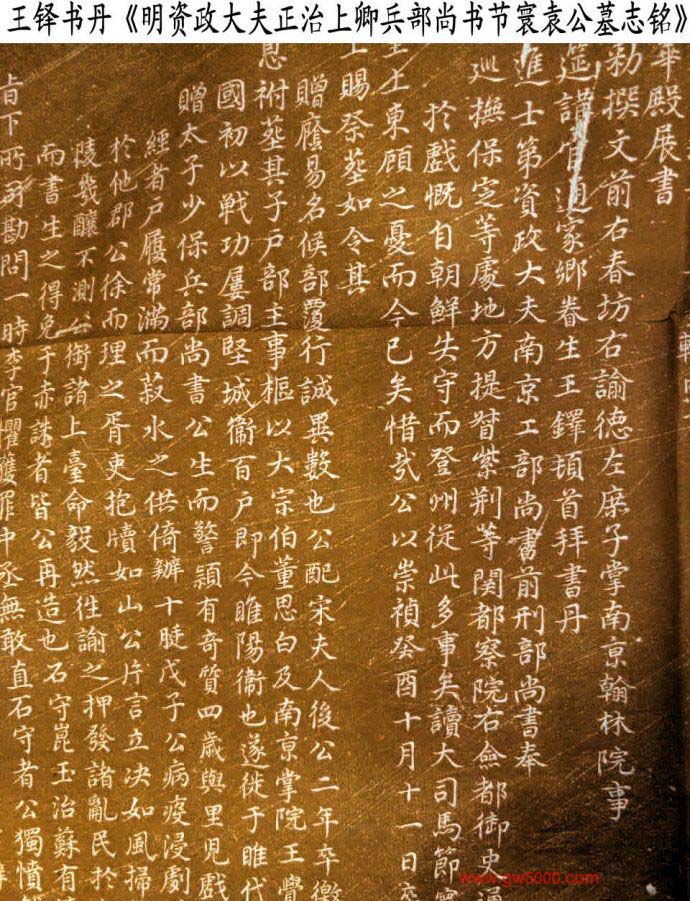 王铎书丹《明资政大夫正治上卿兵部尚书节寰袁公墓志铭》
華殿展書
勑撰文前右春坊右諭德左庶子掌南京翰林院事
筵講官通家鄉眷生王鐸頓首拜書丹
進士第資政大夫南京工部尚書前刑部尚書奉
巡撫保定等處地方提督紫荆等関都察院右僉都御史
於戲慨自朝鮮失守而登州從此多事矣讀大司馬節寰
上東顧之憂而今已矣惜哉公以崇禎癸酉十月十一日卒
上賜祭塟如令其
贈廕易名候部覆行誠異數也公配宋夫人後公二年卒
息祔塟其子戶部主事樞以大宗伯董思白及南京掌院王覺
國初以戦功屢調堅城衞百戶即今睢陽衞也遂徙于睢代
贈太子少保兵部尚書公生而警頴有奇質四歲與里兒戲
經者戶履常滿而菽水之供倚辦十脡戊子公病疫浸劇
於他郡公徐而理之胥吏抱牘如山公片言立决如風掃
陵幾釀不測公銜諸上臺命毅然徃諭之押發諸亂民於
而書生之得免于赤誅者皆公再造也石守崑玉治蘇有
旨下所司勘問一時李官懼獲罪中丞無敢直石守者公獨憤
www.gw5000.com